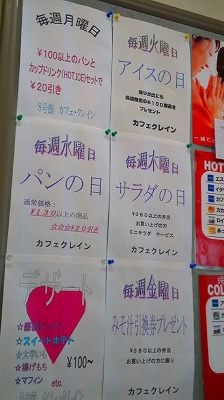 毎週月曜日
￥100以上のパンと
カップドリンク(HOT,ICE)セットで
￥20引き
8号館 カフェ・クレイン
毎週火曜日
アイスの日
プレゼント
カフェクレイン
毎週水曜日
パンの日
通常価格:
￥130以上の商品
☆☆☆￥20引き
カフェクレイン
毎週木曜日
サラダの日
￥380以上の弁当
お買い上げの方
ミニサラダ サービス
カフェクレイン
デザート
☆スイートポテト
☆大学いも
☆揚げもち
☆マフィン etc.
￥100～
毎週金曜日
みそ汁引換券プレゼント
￥380以上の弁当
お買い上げの方に限り
カフェクレイン
HOT